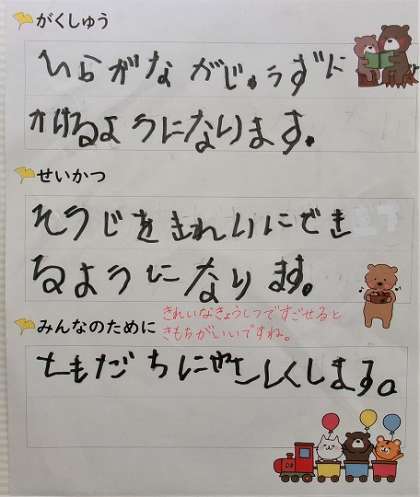 がくしゅう
ひらがながじょうずに
かけるようになります。
せいかつ
そうじをきれいにでき
るようになります。
きれいなきょうしつですごせると
きもちがいいですね。
みんなのために
ともだちにやさしくします。